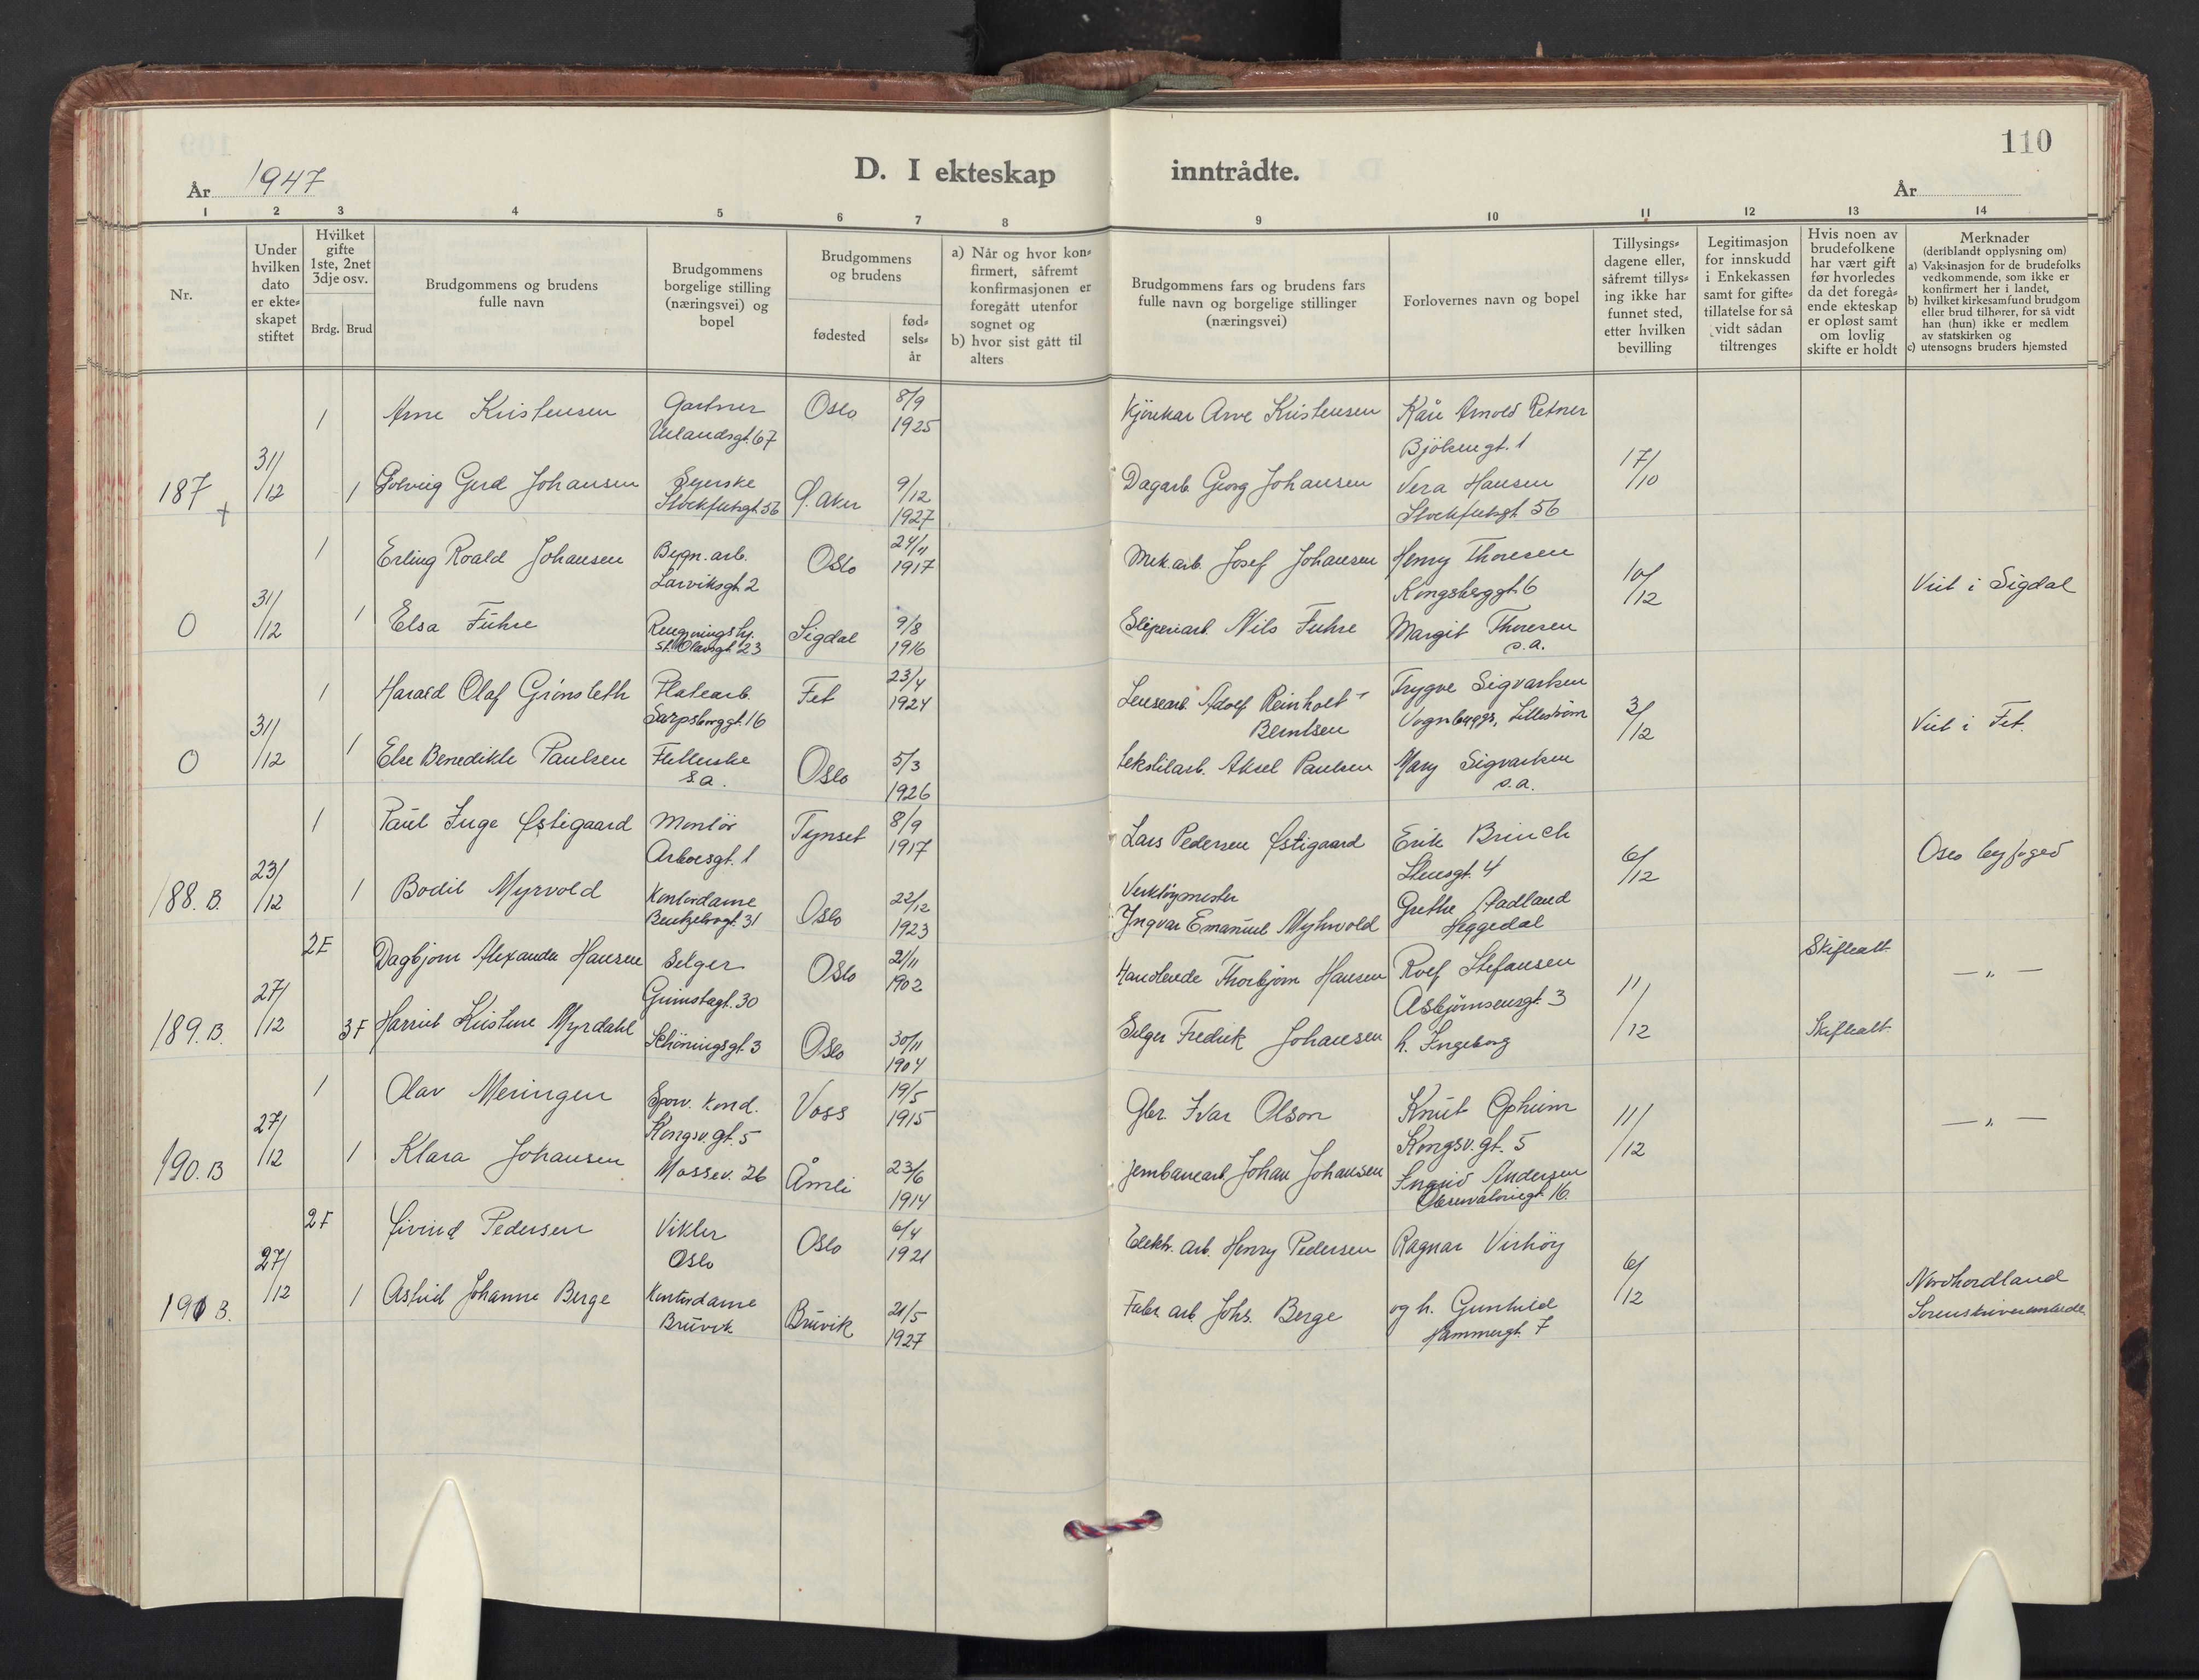 110
D. I ekteskap inntrådte.
År 1947
År
1 2 3 4 5 6 7 8 9 10 11 12 13 14
Nr.
Under
hvilken
dato
er ekte=
skapet
stiftet
Hvilket
gifte
1ste, 2net
3dje osv.
Brdg. Brud
Brudgommens og brudens
fulle navn
Brudgommens
borgelige stilling
(næringsvei) og
bopel
Brudgommens
og brudens
fødested
fød=
sels=
år
a) Når og hvor kon=
firmert, såfremt
konfirmasjonen er
foregått utenfor
sognet og
b) hvor sist gått til
alters
Brudgommens fars og brudens fars
fulle navn og borgelige stillinger
(næringsvei)
Forlovernes navn og bopel
Tillysings=
dagene eller,
såfremt tillys=
ing ikke har
funnet sted,
etter hvilken
bevilling
Legitimasjon
for innskudd
i Enkekassen
samt for gifte=
tillatelse for så
vidt sådan
tiltrenges
Hvis noen av
brudefolkene
har vært gift
før hvorledes
da det foregå=
ende ekteskap
er opløst samt
om lovlig
skifte er holdt
Merknader
(deriblandt opplysning om)
a) Vaksinasjon for de brudefolks
vedkommende, som ikke er
konfirmert her i landet,
b) hvilket kirkesamfund brudgom
eller brud tilhører, for så vidt
han (hun) ikke er medlem
av statskirken og
c) utensogns bruders hjemsted
1 Arne Kristensen Gartner Oslo 8/9 Kjörekar Arve Kristensen Kåre Arnold Petner
Uelandsgt. 67 1925 Bjölsengt. 1
187 + 31/12 1 Solveig Gerd Johansen Syerske Ö. Aker 9/12 Dagarb. Georg Johansen Vera Hansen 17/10
Stockfletsgt. 56 1927 Stockfletsgt. 56
1 Erling Roald Johansen Bygn. arb. Oslo 24/11 Mek. arb. Josef Johansen Henry Thoresen
Larviksgt. 2 1917 Kongsberggt. 6 10/12 Viet i Sigdal
0 31/12 1 Elsa Fuhre Rengjöringshj. Sigdal 9/8 Sliperiarb. Nils Fuhre Margit Thoresen
St. Olavsgt. 23 1916 s.a.
1 Harald Olaf Grönsleth Platearb. Fet 23/4 Lensearb. Adolf Reinholt Trygve Sigvartsen
Sarpsborggt. 16 1924 Berntsen Vognbygger, Lilleström 3/12 Viet i Fet.
0 31/12 1 Else Benedikte Paulsen Fletterske Oslo 5/3 Tekstilarb. Aksel Paulsen Mary Sigvartsen
s.a. 1926 s.a.
1 Paul Inge Østigaard Montör Tynset 8/9 Lars Pedersen Østigaard Erik Brinch
Arboesgt. 1 1917 Stensgt. 4 6/12 Oslo byfoged
188. B. 23/12 1 Bodil Myrvold Kontordame Oslo 22/12 Verktöymester Grethe Aadland
Bentsebrogt. 31 1923 Yngvar Emanuel Myhrvold Heggedal
2F Dagbjorn Alexander Hansen Selger Oslo 21/11 Handlende Thorbjörn Hansen Rolf Stefansen Skifteatt. — „ —
Grimstagt. 30 1902 Asbjörnsensgt. 3 11/12
189. B. 27/12 3F Harriet Kristine Myrdahl Schöningsgt. 3 Oslo 30/11 Selger Fredrik Johansen h. Ingeborg Skifteatt.
1904
1 Olav Meringen Sporv. kond. Voss 19/5 Gbr Ivar Olson Knut Opheim — „ —
Kongsv. gt. 5 1915 Kongsv. gt. 5 11/12
190. B 27/12 1 Klara Johansen Mossev. 26 Åmli 23/6 Jernbanearb. Johan Johansen Ingrid Andersen
1914 Observatoriegt. 16.
2F Eivind Pedersen Vikler Oslo 6/4 Elektr. arb. Henry Pedersen Ragnar Virhöy
Oslo 1921 6/12 Nordhordland
191 B. 27/12 1 Astrid Johanne Berge Kontordame Bruvik 21/5 Fabr. arb. Johs. Berge og h. Gunhild Sorenskriverembede
Bruvik 1927 Hammergt. 7